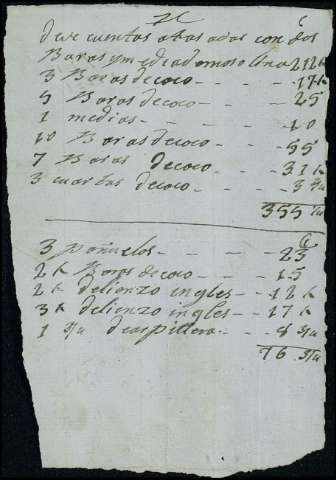 de cuentas atrasadas con dos
Baras y media de moselina 212 k
3 Baras de coco - - 17 k
5 Baras de coco - - 25
1 medias - - 10
10 Baras de coco - - 55
7 Baras de coco - - 31 k
3 cuartas de coco - - 3 3/a
355 3/a
3 pañuelos - - 23
2 k Baras de coco - - 15
2 k de lienzo ingles - - 12 k
3 k de lienzo ingles - - 17 k
1 3/a de arpillera - - 8 3/a
76 3/a